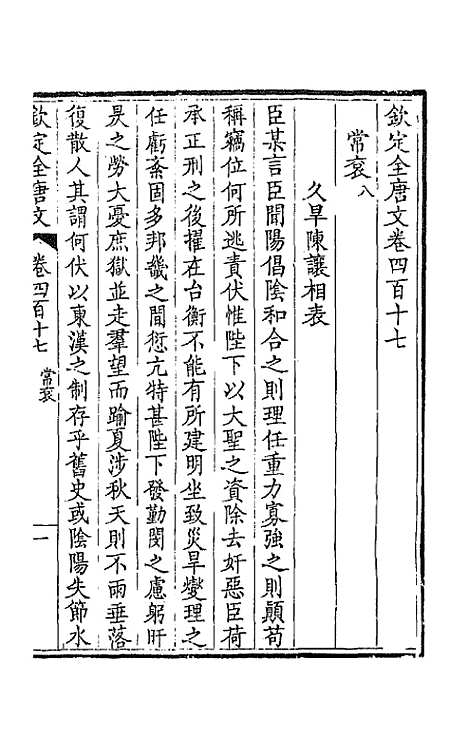 欽定全唐文卷四百十七
常袞八
久旱陳讓相表
臣某言臣聞陽倡陰和合之則理任重力寡強之則顛苟
稱竊位何所逃責伏惟陛下以大聖之資除去奸惡臣荷
承正刑之後擢在台衡不能有所建明坐致災旱燮理之
任虧紊固多邦畿之間愆亢特甚陛下發勤閔之慮躬旰
昃之勞大憂庶獄並走羣望而踰夏涉秋天則不雨垂落
復散人其謂何伏以東漢之制存乎舊史或陰陽失節水
欽定全唐文 卷四百十七 常袞 一